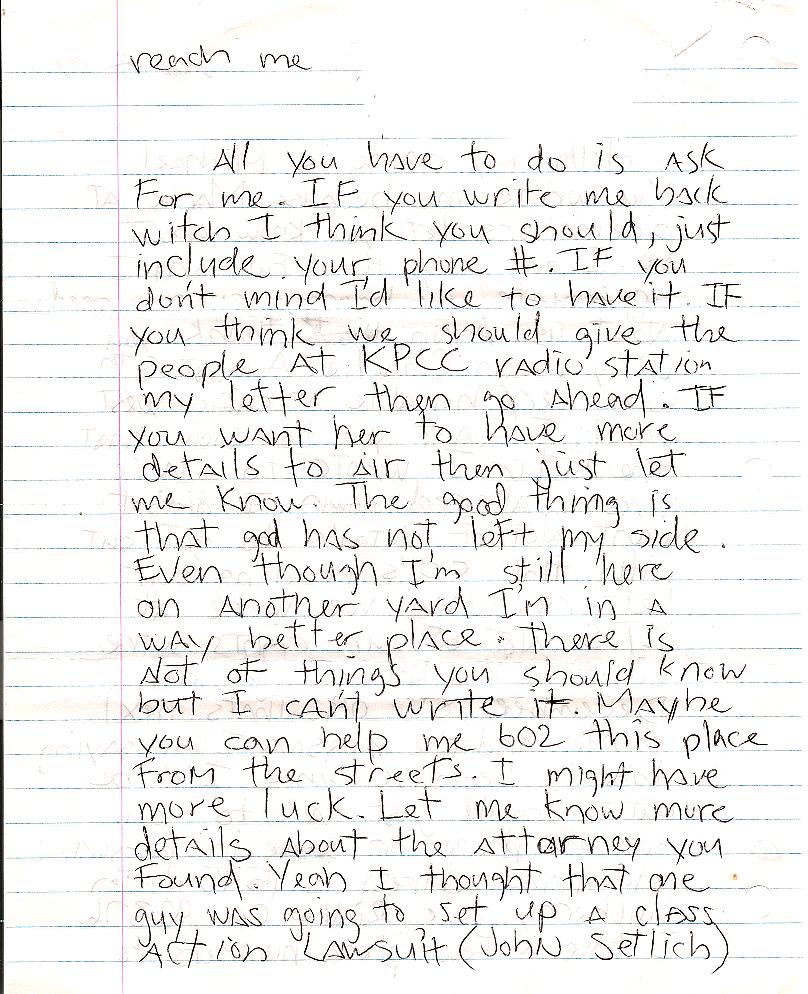 reach me
All you have to do is ASK
For me. IF you write me back
witch I think you should, just
include your phone #. IF you
don't mind I'd like to have it. IF
you think we should give the
people At KPCC radio station
my letter then go Ahead. IF
you want her to have more
details to air then just let
me know. The good thing is
that god has not left my side.
Even though I'm still here
on Another yard I'm in a
way better place. There is
Alot of things you should know
but I can't write it. Maybe
you can help me 602 this place
From the streets. I might have
more luck. Let me know more
details About the Attorney you
Found. Yeah I thought that one
guy was going to set up A class
Action LAWsuit (John Setlich)